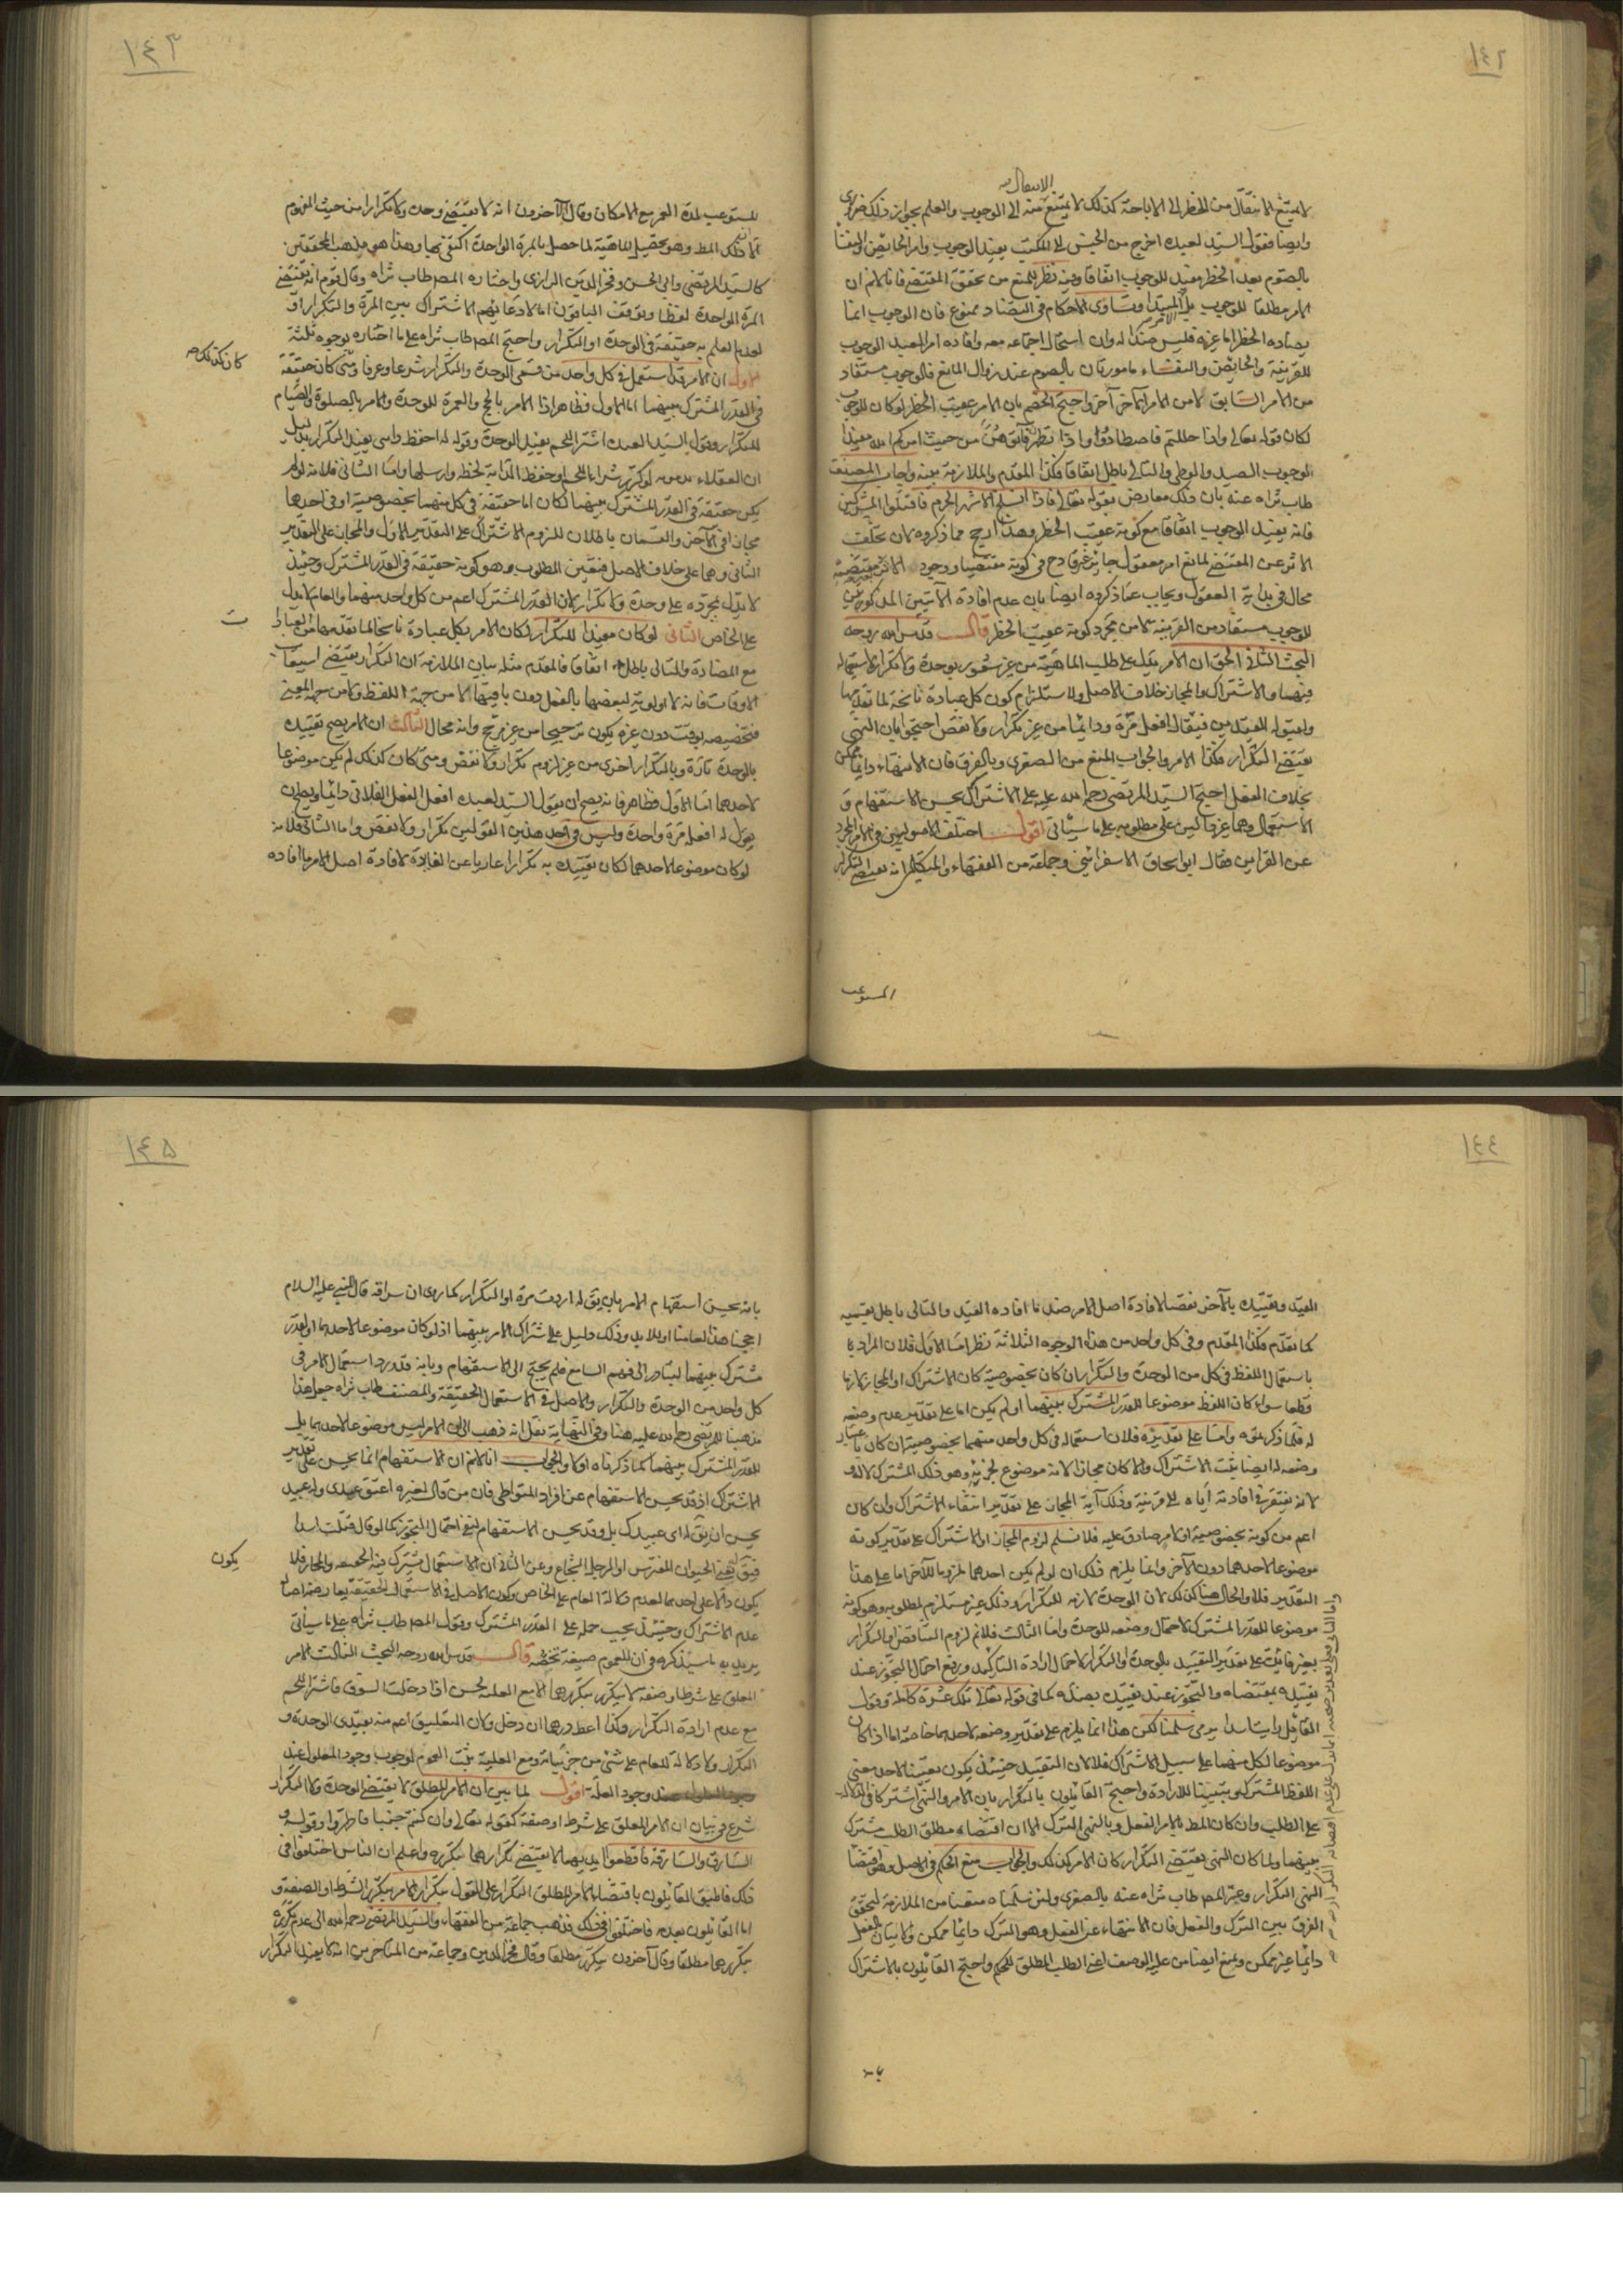 ١٤٢
الانتقال
لا يمتنع الانتقال من الحظر الى الاباحة كذلك لا يمتنع منه الى الوجوب والعلم بجواز ذلك ضرورى
وايضا فقول السيد لعبده اخرج من الحبس الى المكتب يفيد الوجوب وامر الحايض والنفساء
بالصوم بعد الحظر مفيد للوجوب اتفاقا وفيه نظر للمنع من تحقق المقتضى فانا لا نم ان
الامر مطلقا للوجوب بل المبتدا وتساوى الاحكام فى التضاد ممنوع فان الوجوب انما
يضاده الحظر اما غيره فليس ضدا له وان استحال اجتماعه معه وافاده امر العبد الوجوب
للقرينة والحايض والنفساء مامورتان بالصوم عند زوال المانع فالوجوب مستفاد
من الامر السابق لا من الامر الآخر واحتج الخصم بان الامر عقيب الحظر لو كان للوجوب
لكان قوله تعالى واذا حللتم فاصطادوا واذا تطهرن فآتوهن من حيث امركم الله مفيدا
لوجوب الصيد والوطى والتالى باطل اتفاقا فكذا المقدم والملازمة بينة واجاب المصنف
طاب ثراه عنه بان ذلك معارض بقوله تعالى فاذا انسلخ الاشهر الحرم فاقتلوا المشركين
فانه يفيد الوجوب اتفاقا مع كونه عقيب الحظر وهذا ارجح مما ذكروه لان تخلف
الاثر عن المقتضى لمانع امر معقول جايز غير قادح فى كونه مقتضيا ووجود الاثر
محال فى بداية العقول ويجاب عما ذكروه ايضا بان عدم افادة الآيتين المذكورتين
للوجوب مستفاد من القرينة لا من مجرد كونه عقيب الحظر قال قدس الله روحه
البحث الثانى الحق ان الامر يدل على طلب الماهية من غير شعور بوحدة ولا تكرار لاستعماله
فيهما والاشتراك والمجاز خلاف الاصل ولاستلزام كون كل عبادة ناسخة لما تقدمها
ولقبوله القيدين فيقال افعل مرة ودايما من غير تكرار ولا نقض احتجوا بان النهى
يقتضى التكرار فكذا الامر والجواب المنع من الصغرى وبالفرق فان الانتهاء دايما ممكن
بخلاف الفعل احتج السيد المرتضى رحمه الله عليه على الاشتراك بحسن الاستفهام و
الاستعمال وهما غير دالين على مطلوبه على ما سياتى اقول اختلف الاصوليون فى الامر المجرد
عن القراين فقال ابو اسحاق الاسفراينى وجماعة من الفقهاء والمتكلمين انه يقتضى التكرار
المستوعب
١٤٣
المستوعب لمدة العمر مع الامكان وقال الآخرون انه لا يقتضى وحدة ولا تكرارا من حيث المفهوم
الا ان ذلك المط وهو تحصيل الماهية لما حصل بالمرة الواحدة اكتفى بها وهذا هو مذهب المحققين
كالسيد المرتضى وابى الحسن وفخر الدين الرازى واختاره المصـ طاب ثراه وقال قوم انه يقتضى
المرة الواحدة لفظا وتوقف الباقون اما لادعائهم الاشتراك بين المرة والتكرار او
لعدم العلم بحقيقة فى الوحدة او التكرار واحتج المصـ طاب ثراه على ما اختاره بوجوه ثلثة
الاول ان الامر قد استعمل فى كل واحد من قسمى الوحدة والتكرار شرعا وعرفا ومتى كان حقيقة
فى القدر المشترك بينهما اما الاول فظاهر اذا الامر بالحج والعمرة للوحدة والامر بالصلوة والصيام
للتكرار وقول السيد لعبده اشتر اللحم يفيد الوحدة وقوله له احفظ دابتى يفيد التكرار بدليل
ان العقلاء لو كرر شراء اللحم او حفظ الدابة لحظة وارسلها واما الثانى فلانه لو لم
يكن حقيقة فى القدر المشترك بينهما لكان اما حقيقة فى كل منهما بخصوصية او فى احدهما
مجاز فى الآخر والقسمان باطلان للزوم الاشتراك على التقدير الاول والمجاز على التقدير
الثانى وهما على خلاف الاصل فتعين المطلوب وهو كونه حقيقة فى القدر المشترك وحينئذ
لا يدل بمجرده على وحدة ولا تكرار لان القدر المشترك اعم من كل واحد منهما والعام لا يدل
على الخاص الثانى لو كان مفيدا للتكرار لكان الامر بكل عبادة ناسخا لما تقدمها من العبادات
مع المضادة والتالى باطل اتفاقا فالمقدم مثله بيان الملازمة ان التكرار يقتضى استيعاب
الاوقات فانه لا اولوية لبعضها بالفعل دون باقيها لا من جهة اللفظ ولا من جهة المعنى
فتخصيصه بوقت دون غيره يكون ترجيحا من غير مرجح وانه محال الثالث ان الامر يصح تقييده
بالوحدة تارة وبالتكرار اخرى من غير لزوم تكرار ولا نقض ومتى كان كذلك لم يكن موضوعا
لاحدهما اما الاول فظاهر فانه يصح ان يقول السيد لعبده افعل الفعل الفلانى دايما ويصح ان
يقول له افعله مرة واحدة وليس فى احد هذين القولين تكرار ولا نقض واما الثانى فلانه
لو كان موضوعا لاحدهما لكان تقييده به تكرارا عاريا عن الفايدة لافادة اصل الامر ما افاده
١٤٤
القيد وتقييده بالآخر نقضا لافادة اصل الامر ضد ما افاده القيد والتالى باطل بقسميه
كما تقدم فكذا المقدم وفى كل واحد من هذه الوجوه الثلاثة نظر اما الاول فلان المراد
باستعمال اللفظ فى كل من الوحدة والتكرار ان كان بخصوصية كان الاشتراك او المجاز لازما
قطعا سواء كان اللفظ موضوعا للقدر المشترك بينهما او لم يكن اما على تقدير عدم وضعه
له فلما ذكرتموه واما على تقديره فلان استعماله فى كل واحد منهما بخصوصية ان كان باعتبار
وضعه له ايضا ثبت الاشتراك والا كان مجازا لانه موضوع لجزئه وهو ذلك المشترك لا له و
لانه يفتقر فى افادته اياه الى قرينة وذلك آية المجاز على تقدير انتفاء الاشتراك وان كان
اعم من كونه بخصوصية او لامر صادق عليه فلا نسلم لزوم المجاز او الاشتراك على تقدير كونه
موضوعا لاحدهما دون الآخر وانما يلزم ذلك ان لو لم يكن احدهما ملزوما للآخر اما على هذا
التقدير فلا والحال هنا كذلك لان الوحدة لازمة للتكرار وذلك غير مستلزم لمطلوبه وهو كونه
موضوعا للقدر المشترك لاحتمال وضعه للوحدة واما الثالث فلا نم لزوم التناقض او التكرار
بغير فائدة على تقدير التقييد بالوحدة او التكرار لاحتمال ارادة التاكيد ورفع احتمال التجوز عند
تقييده بمقتضاه والتجوز عند تقييده بضده كما فى قوله تعالى تلك عشرة كاملة وقول
القائل رايت اسدا يرمى سلمنا لكن هذا انما يلزم على تقدير وضعه لاحدهما خاصة اما اذا كان
موضوعا لكل منهما على سبيل الاشتراك فلا لان التقييد حينئذ يكون تعيينا لاحد معنيى
اللفظ المشترك وتبيينا للارادة واحتج القائلون بالتكرار بان الامر والنهى اشتركا فى الدلالة
على الطلب وان كان المط بالامر الفعل وبالنهى الترك الا ان اقتضاء مطلق الطلب مشترك
بينهما ولما كان النهى يقتضى التكرار كان الامر كذلك والجواب منع الحكم فى الاصل وهو اقتضاء
النهى التكرار وعبر المصـ طاب ثراه عنه بالصغرى ولئن سلمناه منعنا من الملازمة لتحقق
الفرق بين الترك والفعل فان الانتهاء عن الفعل وهو الترك دايما ممكن والاتيان بالفعل
دايما غير ممكن ونمنع ايضا من علية الوصف اعنى الطلب المطلق للحكم واحتج القائلون بالاشتراك
بانه
١٤٥
بانه يحسن استفهام الامر بان يق له اردت مرة او التكرار كما روى ان سراقة قال للنبى عليه السلام
احجنا هذا لعامنا او للابد وذلك دليل على اشتراك الامر بينهما اذ لو كان موضوعا لاحدهما او لقدر
مشترك بينهما لتبادر الى فهم السامع فلم يحتج الى الاستفهام وبانه قد ورد استعمال الامر فى
كل واحد من الوحدة والتكرار والاصل فى الاستعمال الحقيقة والمصنف طاب ثراه جعل هذا
مذهبنا للمرتضى رحمة الله عليه هنا وفى النهاية نقل انه ذهب الى ان الامر ليس موضوعا لاحدهما بل
للقدر المشترك بينهما كما ذكرناه اولا والجواب انا لا نم ان الاستفهام انما يحسن على تقدير
الاشتراك اذ قد يحسن الاستفهام عن افراد المتواطى فان من قال لغيره اعتق عبدى وله عبيد
يحسن ان يق له اى عبيدك بل وقد يحسن الاستفهام لنفى احتمال التجوز كما لو قال قتلت اسدا
فيق له تعنى الحيوان المفترس او الرجل الشجاع وعن الثانى ان الاستعمال مشترك فيه الحقيقة والمجاز فلا
يكون دالا على احدهما لعدم دلالة العام على الخاص وكون الاصل فى الاستعمال الحقيقة يعارضه اصالة
عدم الاشتراك وحينئذ يجب حمله على القدر المشترك وقول المصـ طاب ثراه على ما سياتى
يريد به ما سيذكره فى ان للعموم صيغة تخصه قال قدس الله روحه البحث الثالث الامر
المعلق على شرط او صفة لا يتكرر بتكررهما الا مع العلية لحسن اذا دخلت السوق فاشتر اللحم
مع عدم ارادة التكرار وكذا اعطه درهما ان دخل ولان التعليق اعم منه بقيدى الوحدة و
التكرار ولا دلالة للعام على شىء من جزئياته ومع العلية يثبت العموم لوجوب وجود المعلول عند
وجود العلة اقول لما بين ان الامر المطلق لا يقتضى الوحدة ولا التكرار
شرع فى بيان ان الامر المعلق على شرط او صفة كقوله تعالى وان كنتم جنبا فاطهروا وقوله و
السارق والسارقة فاقطعوا ايديهما لا يقتضى تكرارهما تكرره واعلم ان الناس اختلفوا فى
ذلك فاطبق القائلون باقتضاء الامر المطلق التكرار على القول بتكرار الامر بتكرر الشرط او الصفة و
اما القائلون بعدمه فاختلفوا فى ذلك فذهب جماعة من الفقهاء والسيد المرتضى رحمه الله الى عدم تكرره
بتكررهما مطلقا وقال آخرون يتكرر مطلقا وقال فخر الدين وجماعة من المتاخرين انه لا يفيد التكرار
يكون